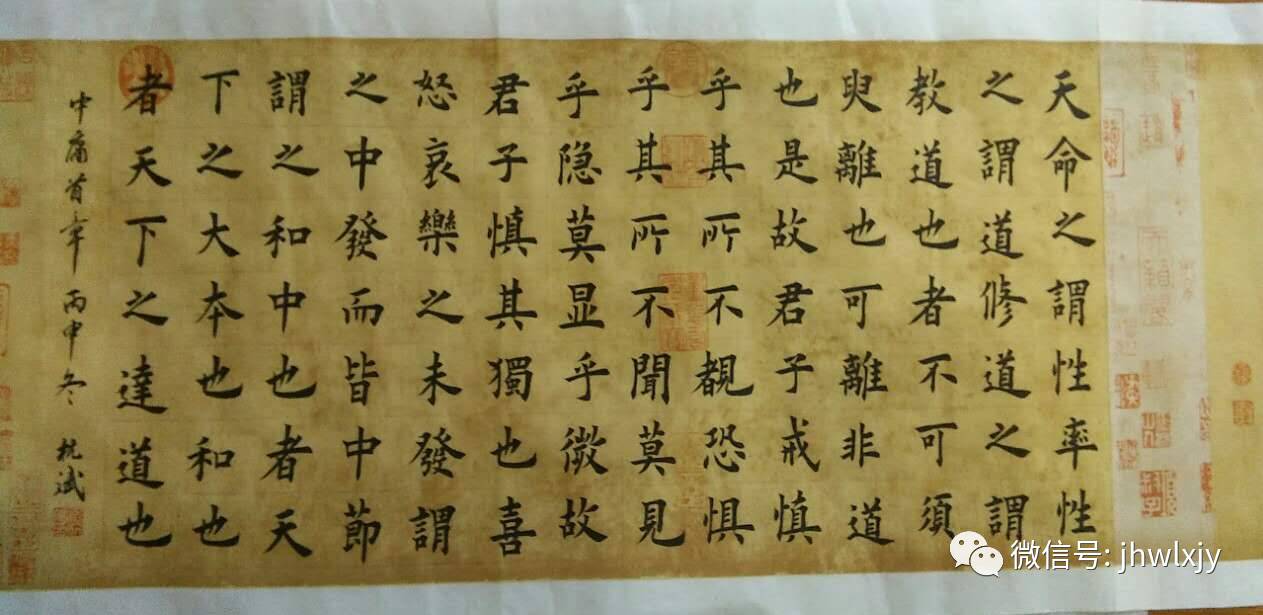 天命之謂性率性
之謂道修道之謂
教道也者不可須
臾離也可離非道
也是故君子戒慎
乎其所不覩恐惧
乎其所不聞莫見
乎隐莫显乎微故
君子慎其獨也喜
怒哀樂之未發謂
之中發而皆中節
謂之和中也者天
下之大本也和也
者天下之達道也
中庸首章 丙申冬 杭斌
微信号: jhwlxjy